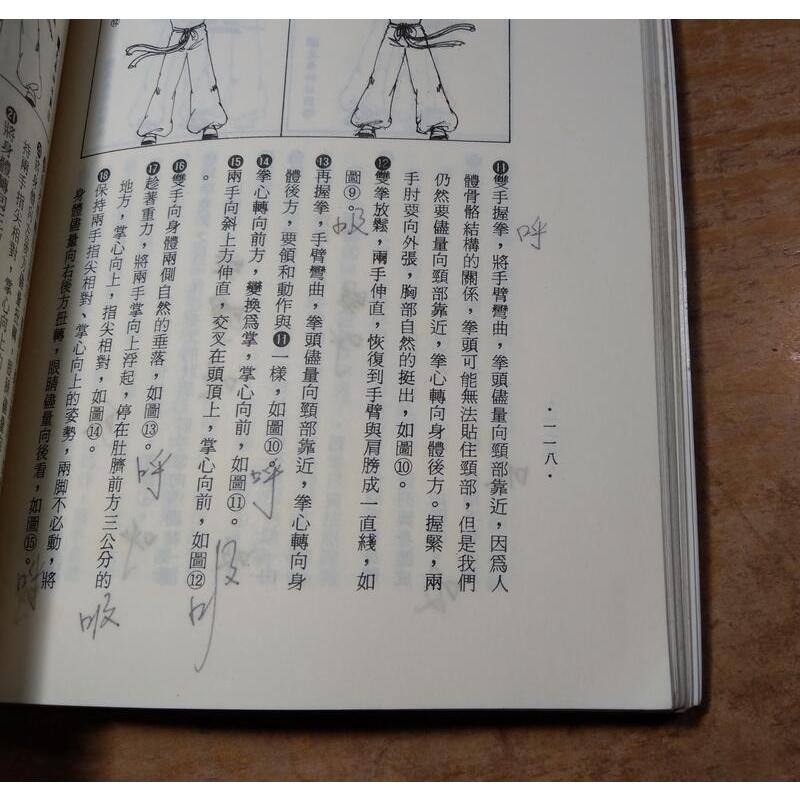 ・一一八・
⓫雙手握拳，將手臂彎曲，拳頭儘量向頸部靠近，因爲人
體骨骼結構的關係，拳頭可能無法貼住頸部，但是我們
仍然要儘量向頸部靠近，拳心轉向身體後方。握緊，兩
手肘要向外張，胸部自然的挺出，如圖⑩。
呼
⓬雙拳放鬆，兩手伸直，恢復到手臂與肩膀成一直綫，如
圖⑨。
吸
⓭再握拳，手臂彎曲，拳頭儘量向頸部靠近，拳心轉向身
體後方，要領和動作與⓫一樣，如圖⑩。
呼
⓮拳心轉向前方，變換爲掌，掌心向前，如圖⑪。
吸
⓯兩手向斜上方伸直，交叉在頭頂上，掌心向前，如圖⑫
。
吸
⓰雙手向身體兩側自然的垂落，如圖⑬。
呼
⓱趁著重力，將兩手掌向上浮起，停在肚臍前方三公分的
地方，掌心向上，指尖相對，如圖⑭。
吸
⓲保持兩手指尖相對、掌心向上的姿勢，兩脚不必動，將
身體儘量向右後方扭轉，眼睛儘量向後看，如圖⑮。
呼